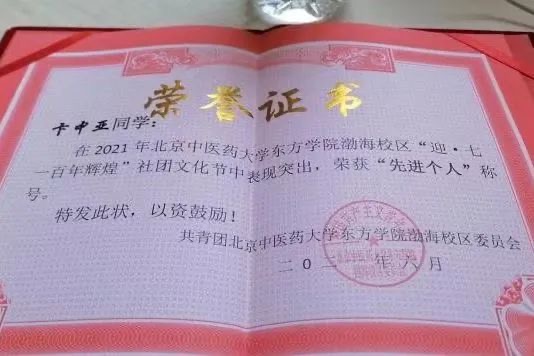 荣誉证书
卡中亚同学：
在2021年北京中医药大学东方学院渤海校区“迎·七
一百年辉煌”社团文化节中表现突出，荣获“先进个人”称
号。
特发此状，以资鼓励！
共青团北京中医药大学东方学院渤海校区委员会
二〇二 年六月